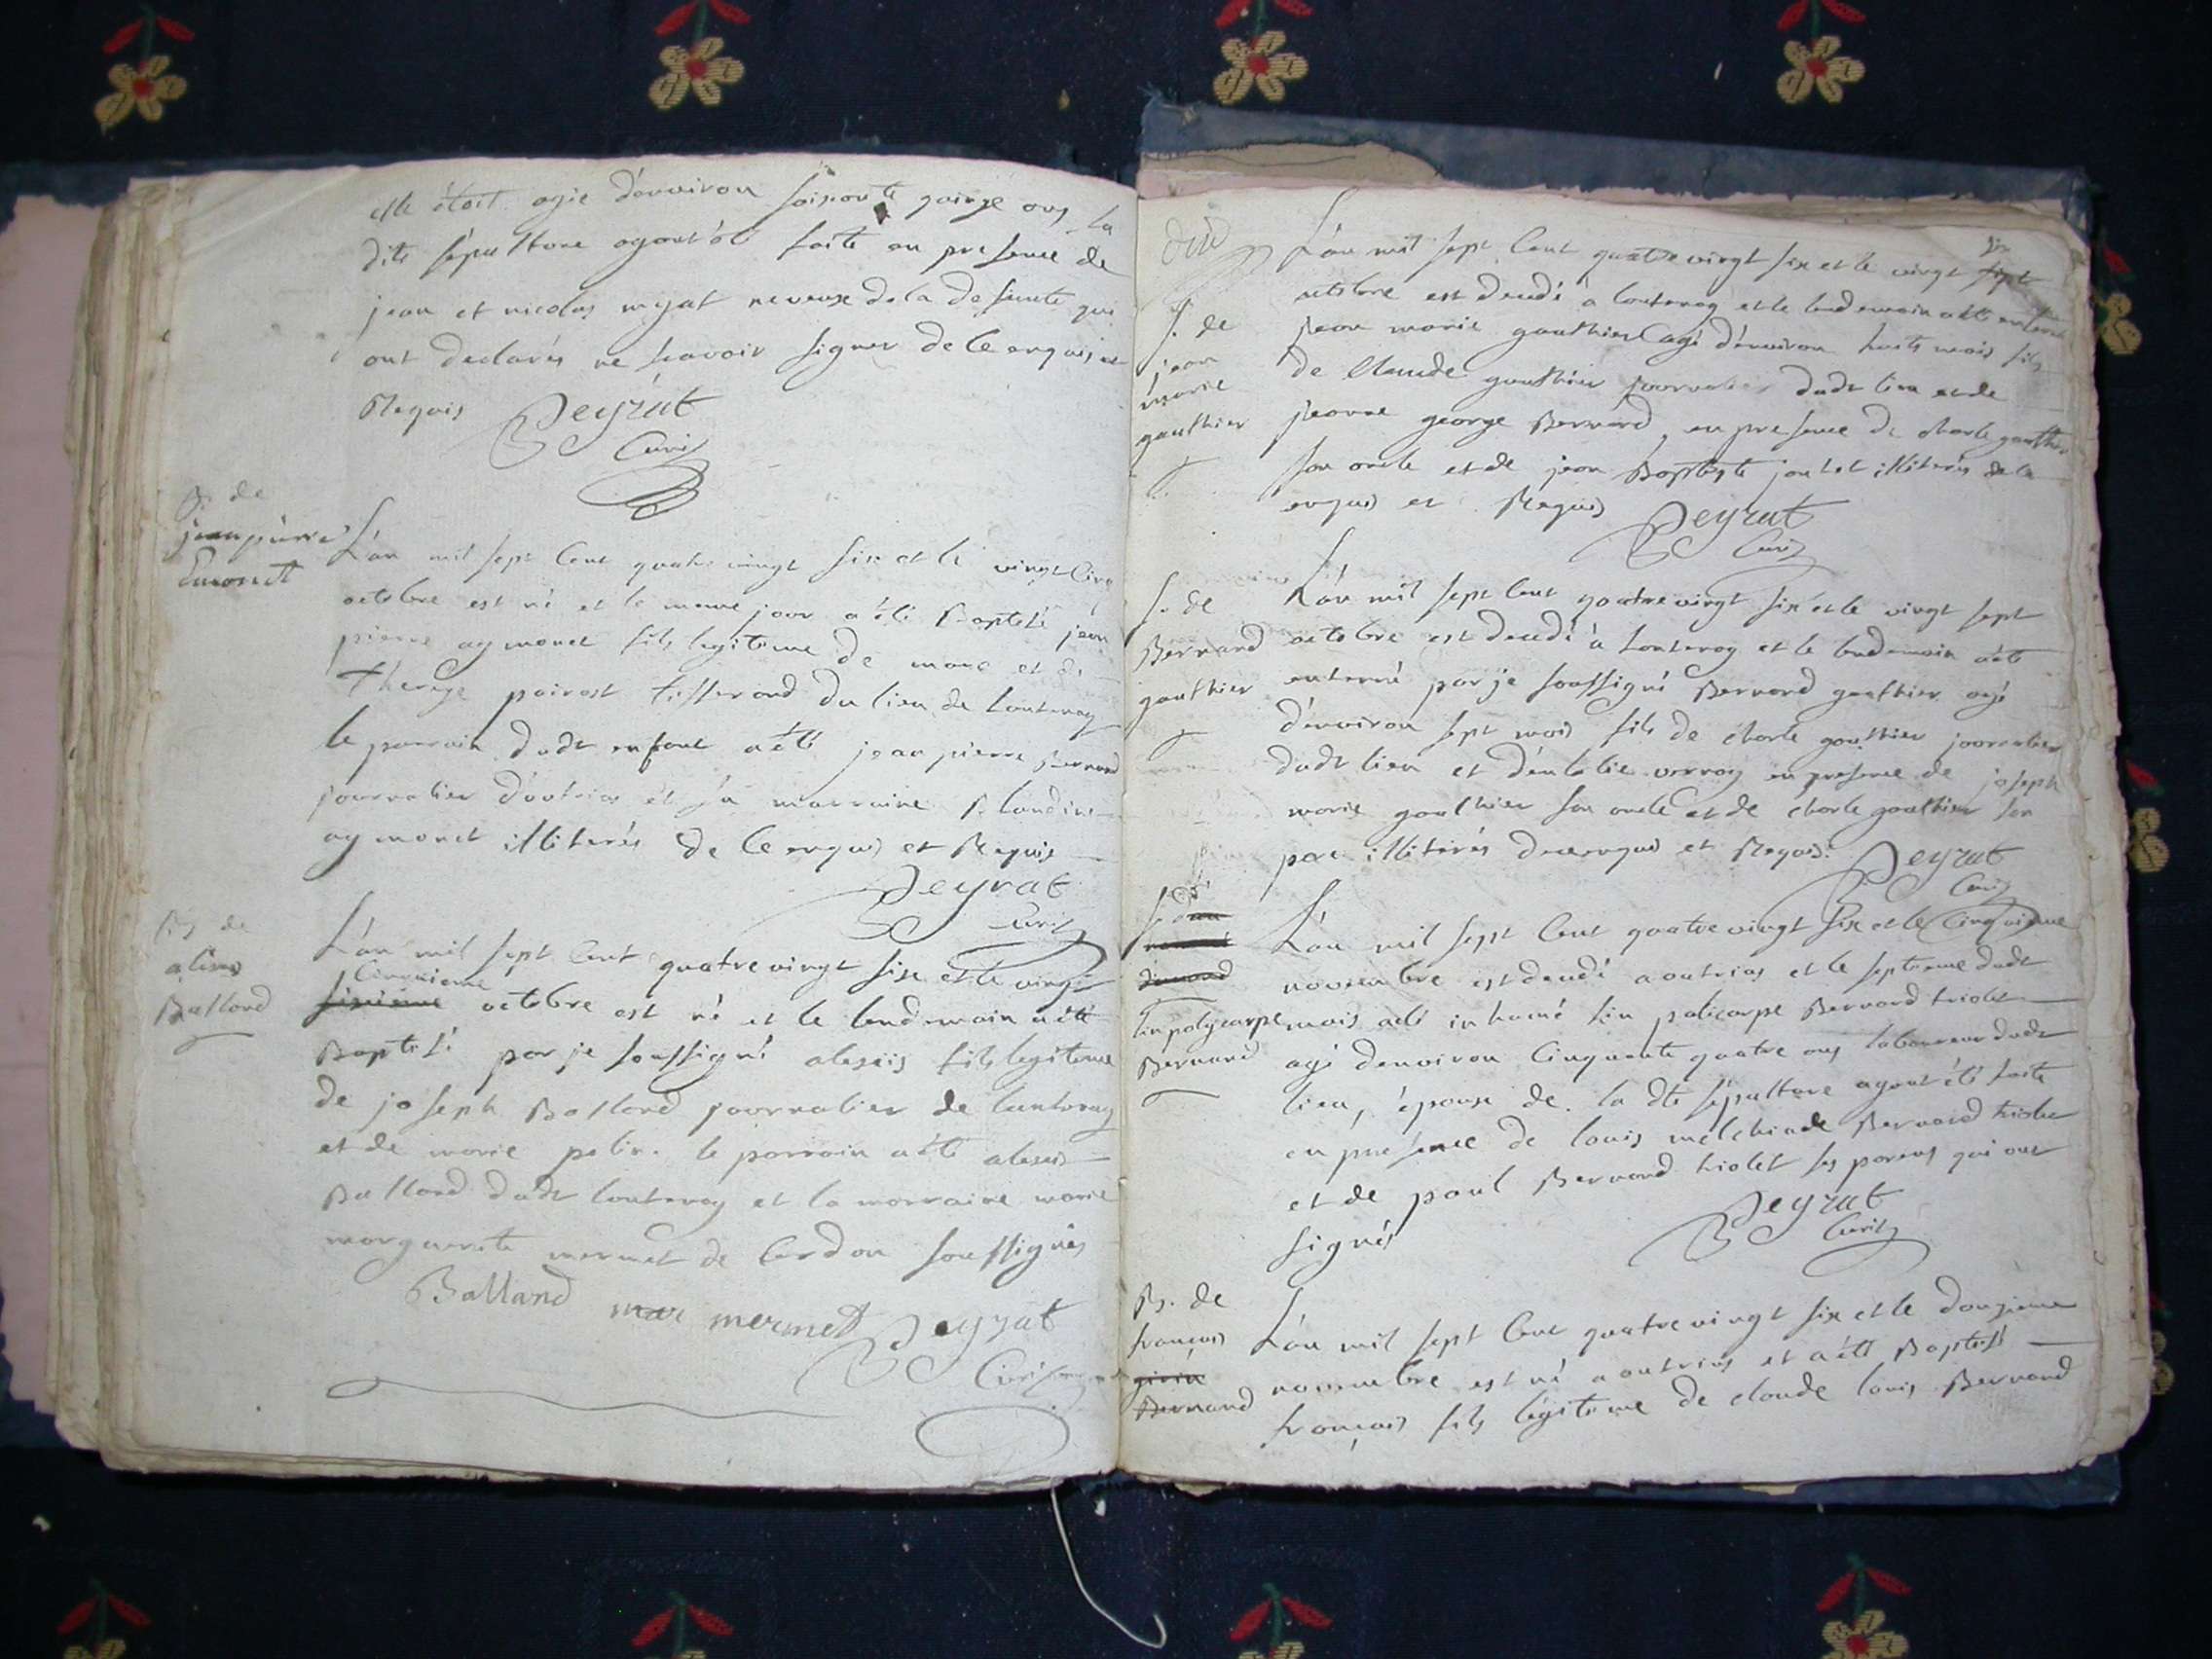 elle étoit agée d'environ soisonte quinze ans la
dite sépulture ayant été faite en presence de
jean et nicolas myat neveux de la defunte qui
ont declarés ne scavoir signer de ce enquis et
Requis Peyrat
Curé
B. de
jean pierre
Emonet
L'an mil sept cent quatre vingt six et le vingt cinq
octobre est né et le meme jour a été Baptisé jean
pierre aymonet fils legitime de marc et de
Thereze poirost tisserand du lieu de Lantenay
le parrain dudt enfant a été jean pierre Bernard
journalier d'outriaz et sa marraine Claudine
aymonet illiterés de ce enquis et Requis
Peyrat
Curé
B. de
alexis
Balland
L'an mil sept cent quatre vingt six et le vingt
cinquieme
sixième octobre est né et le lendemain a été
Baptisé par je soussigné alexis fils legitime
de joseph Balland journalier de lantenay
et de marie polin. le parrain a été alexis
Balland dudt lantenay et la marraine marie
marguerite mermet de Cerdon soussignés
Balland mar mermet Peyrat
Curé
L'an mil sept Cent quatre vingt six et le vingt sept
six
octobre est decedé a lantenay et le lendemain a été enterré
S. de
jean
marie
gauthier
jean marie gauthier agé d'environ huit mois fils
de Claude gauthier journalier dudt lieu et de
jeanne george Bernard, en presence de charle gauthier
son oncle et de jean Baptiste joutet illiterés de ce
enquis et Requis Peyrat
Curé
S. de
Bernard
gauthier
L'an mil sept cent quatre vingt six et le vingt sept
octobre est decedé a lantenay et le lendemain a été
enterré par je soussigné Bernard gauthier agé
d'environ sept mois fils de charle gauthier journalier
dudt lieu et d'eulalie verray en presence de joseph
marie gauthier son oncle et de charle gauthier son
pere illiterés de ce enquis et Requis. Peyrat
Curé
S. de
Lin polycarpe
Bernard
L'an mil sept cent quatre vingt six et le cinquieme
novembre est decedé a outrias et le septieme dudt
mois a été inhumé lin policarpe Bernard triolet
agé d'environ cinquante quatre ans laboureur dudt
lieu, époux de. la dte sépulture ayant été faite
en présence de louis melchiade Bernard triolet
et de paul Bernard triolet ses parens qui ont
signés Peyrat
Curé
B. de
françois
Bernard
L'an mil sept cent quatre vingt six et le douzieme
novembre est né a outrias et a été Baptisé
françois fils légitime de claude louis Bernard